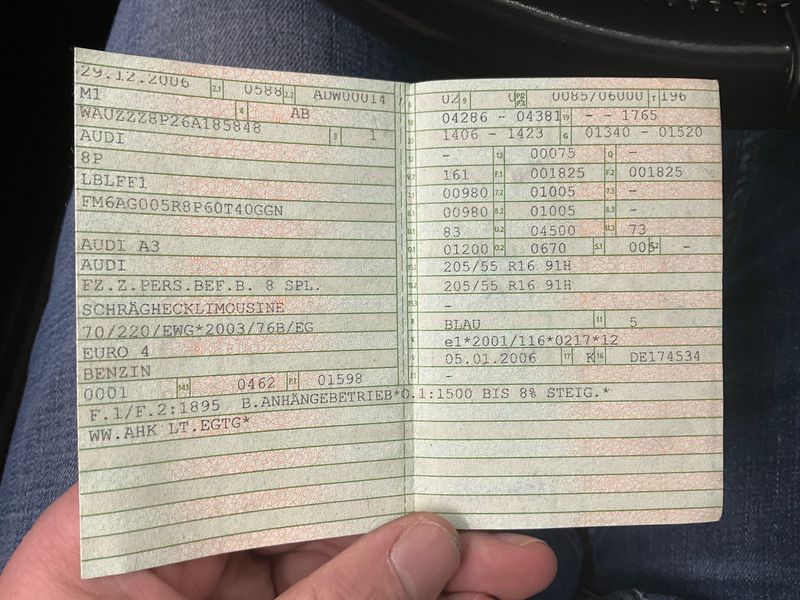 29.12.2006 2.1 0588 2.2 ADW00014
M1 4 AB
WAUZZZ8P26A185848 3 1
AUDI
8P
LBLFF1
FM6AG005R8P60T40GGN
AUDI A3
AUDI
FZ.Z.PERS.BEF.B. 8 SPL.
SCHRÄGHECKLIMOUSINE
70/220/EWG*2003/76B/EG
EURO 4
BENZIN
0001 14.1 0462 P.1 01598
F.1/F.2:1895 B.ANHÄNGEBETRIEB*O.1:1500 BIS 8% STEIG.*
WW.AHK LT.EGTG*
02 9 0085/06000 T 196
18 04286 - 04381 19 - - 1765
20 1406 - 1423 G 01340 - 01520
- 13 00075 Q -
161 F.1 001825 F.2 001825
00980 7.2 01005 7.3 -
00980 8.2 01005 8.3 -
83 U.2 04500 U.3 73
O.1 01200 O.2 0670 S.1 005 S.2 -
205/55 R16 91H
205/55 R16 91H
-
R BLAU 11 5
K e1*2001/116*0217*12
6 05.01.2006 17 K 16 DE174534
21 -